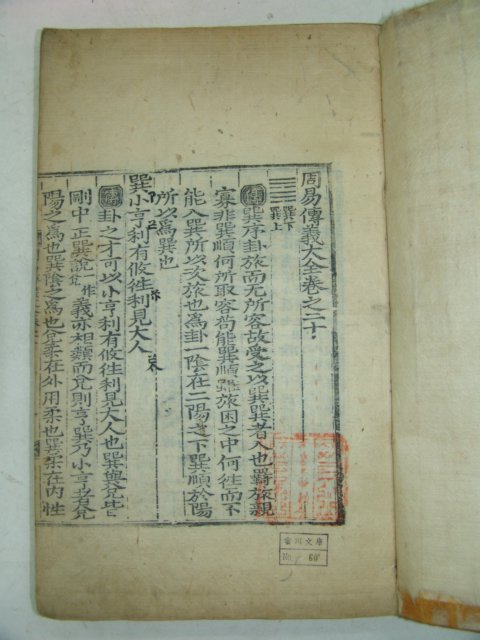 周易傳義大全卷之二十
巽下
巽上
傳巽序卦旅而无所容故受之以巽巽者入也羇旅親
寡非巽順何所取容苟能巽順雖旅困之中何往而不
能入巽所以次旅也爲卦一陰在二陽之下巽順於陽
所以爲巽也
巽小亨利有攸往利見大人
傳卦之才可以小亨利有攸往利見大人也巽與兌皆
剛中正巽說一作兌義亦相類而兌則亨巽乃小亨者兌
陽之爲也巽陰之爲也兌柔在外用柔也巽柔在內性
文庫
No. 60